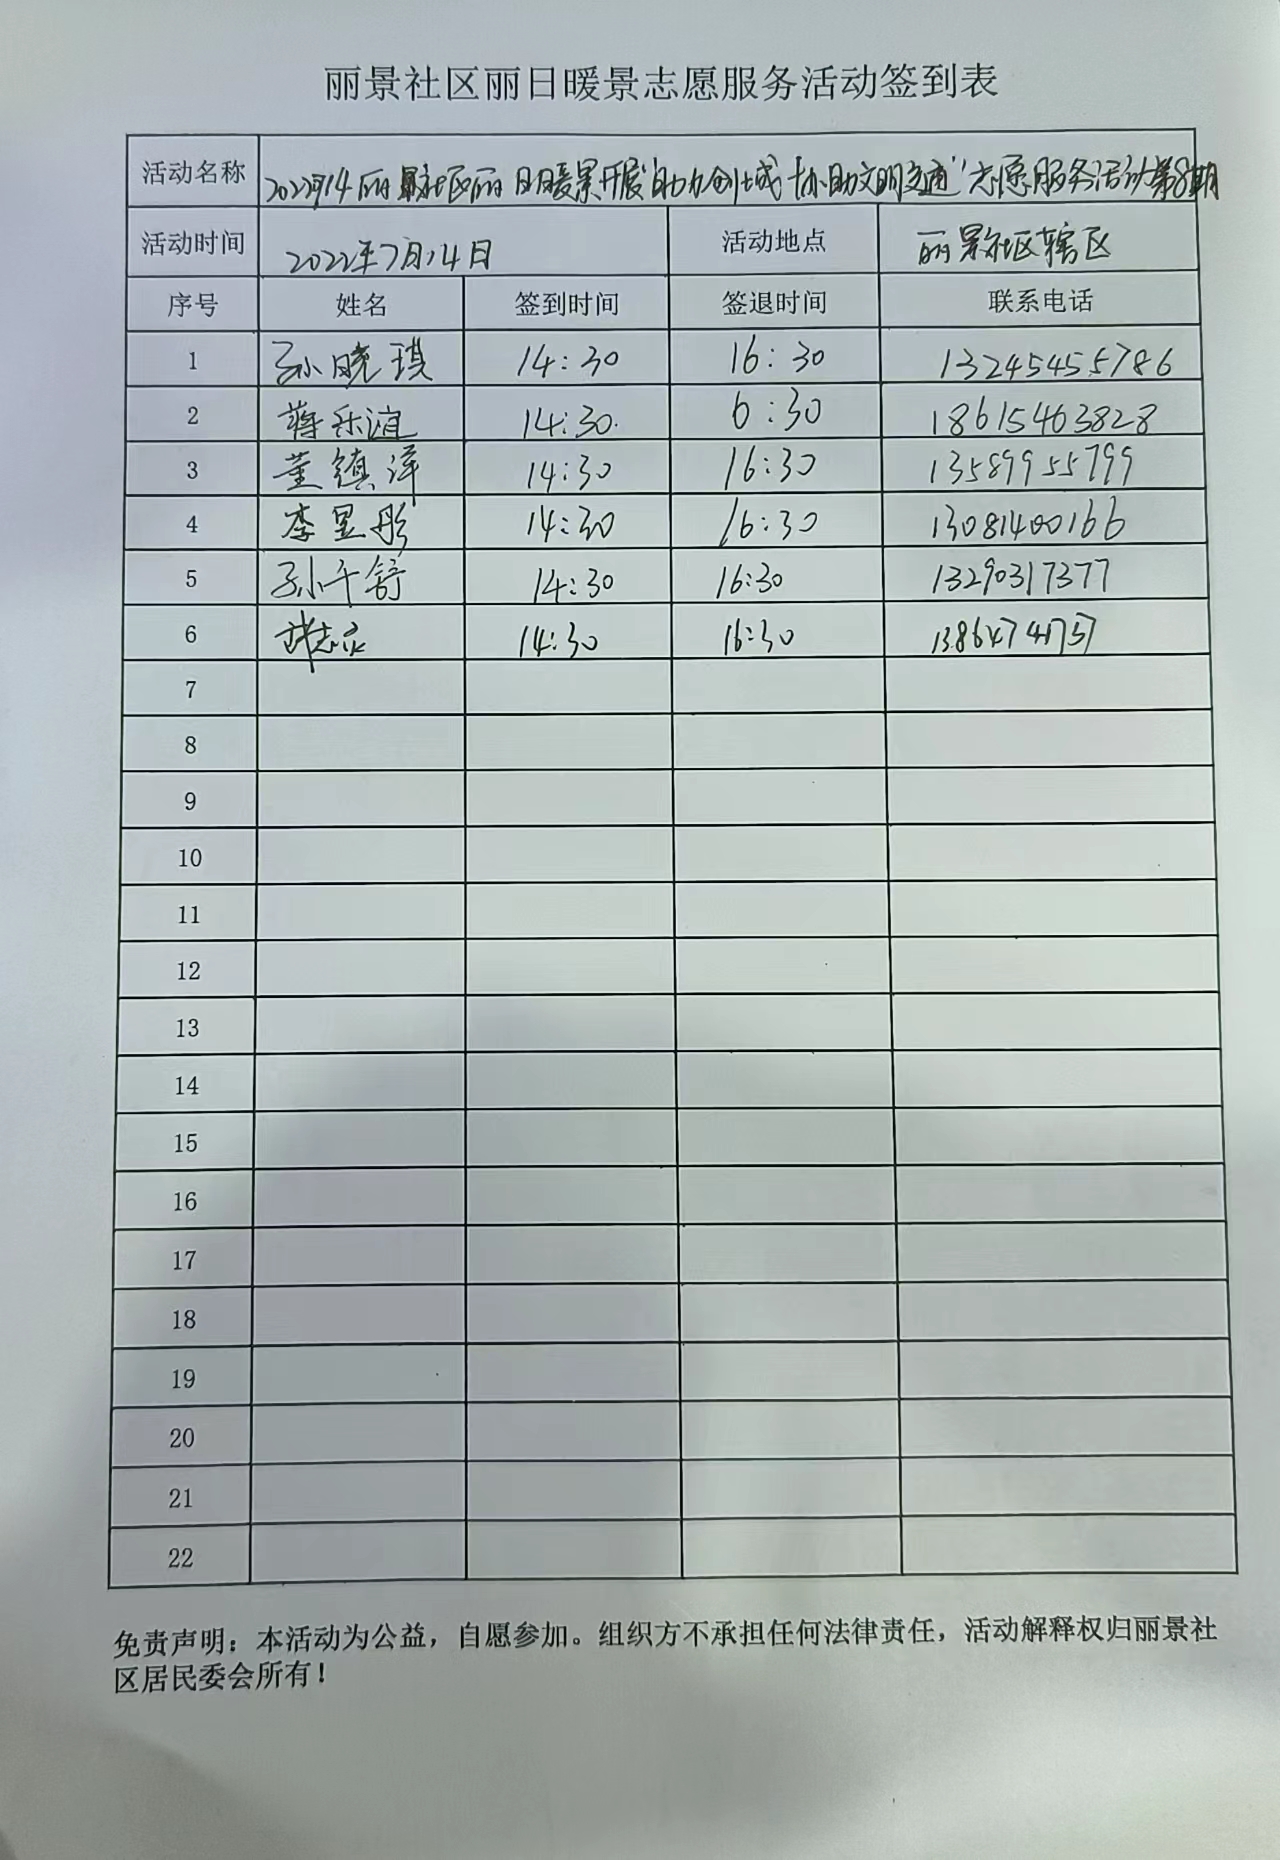 丽景社区丽日暖景志愿服务活动签到表
活动名称 丽景社区丽日暖景开展"助力创城 协助文明交通"志愿服务活动第8期
活动时间 2022年7月14日 活动地点 丽景社区辖区
序号 姓名 签到时间 签退时间 联系电话
1 孙晓琪 14:30 16:30 13245455786
2 蒋乐谊 14:30. 6:30 18615463828
3 董镇洋 14:30 16:30 13589955799
4 李昱彤 14:30 16:30 13081400166
5 孙千舒 14:30 16:30 13290317377
6 14:30 16:30 13864741757
7
8
9
10
11
12
13
14
15
16
17
18
19
20
21
22
免责声明：本活动为公益，自愿参加。组织方不承担任何法律责任，活动解释权归丽景社
区居民委会所有！